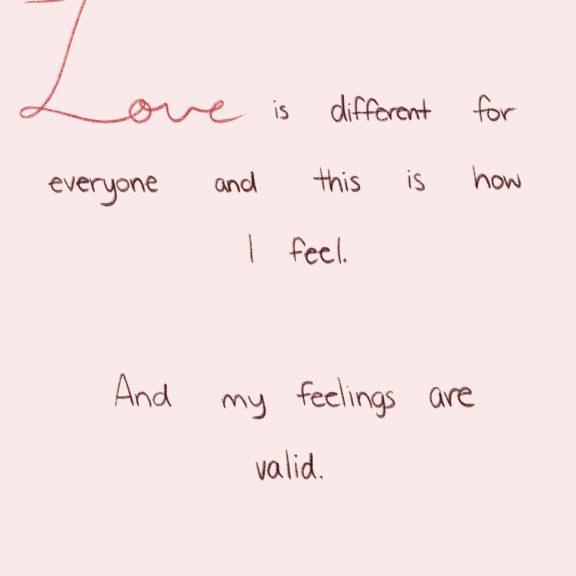 Love is different for
everyone and this is how
I feel.
And my feelings are
valid.